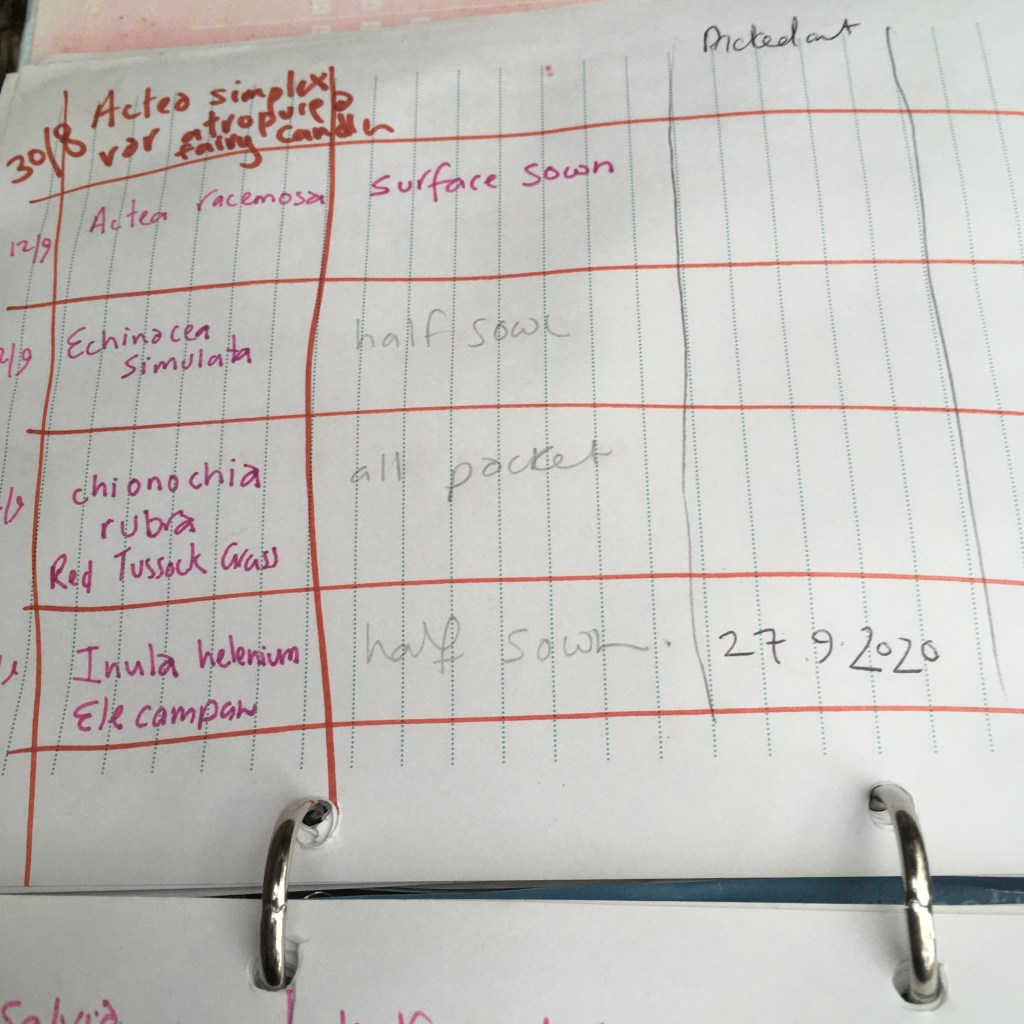 Pricked out
30/8 Actea simplex
var atropurp
fairy candle
12/9 Actea racemosa surface sown
2/9 Echinacea half sown
simulata
chionochia all packet
rubra
Red Tussock Grass
Inula helenium half sown. 27.9.2020
Elecampane
Salvia half